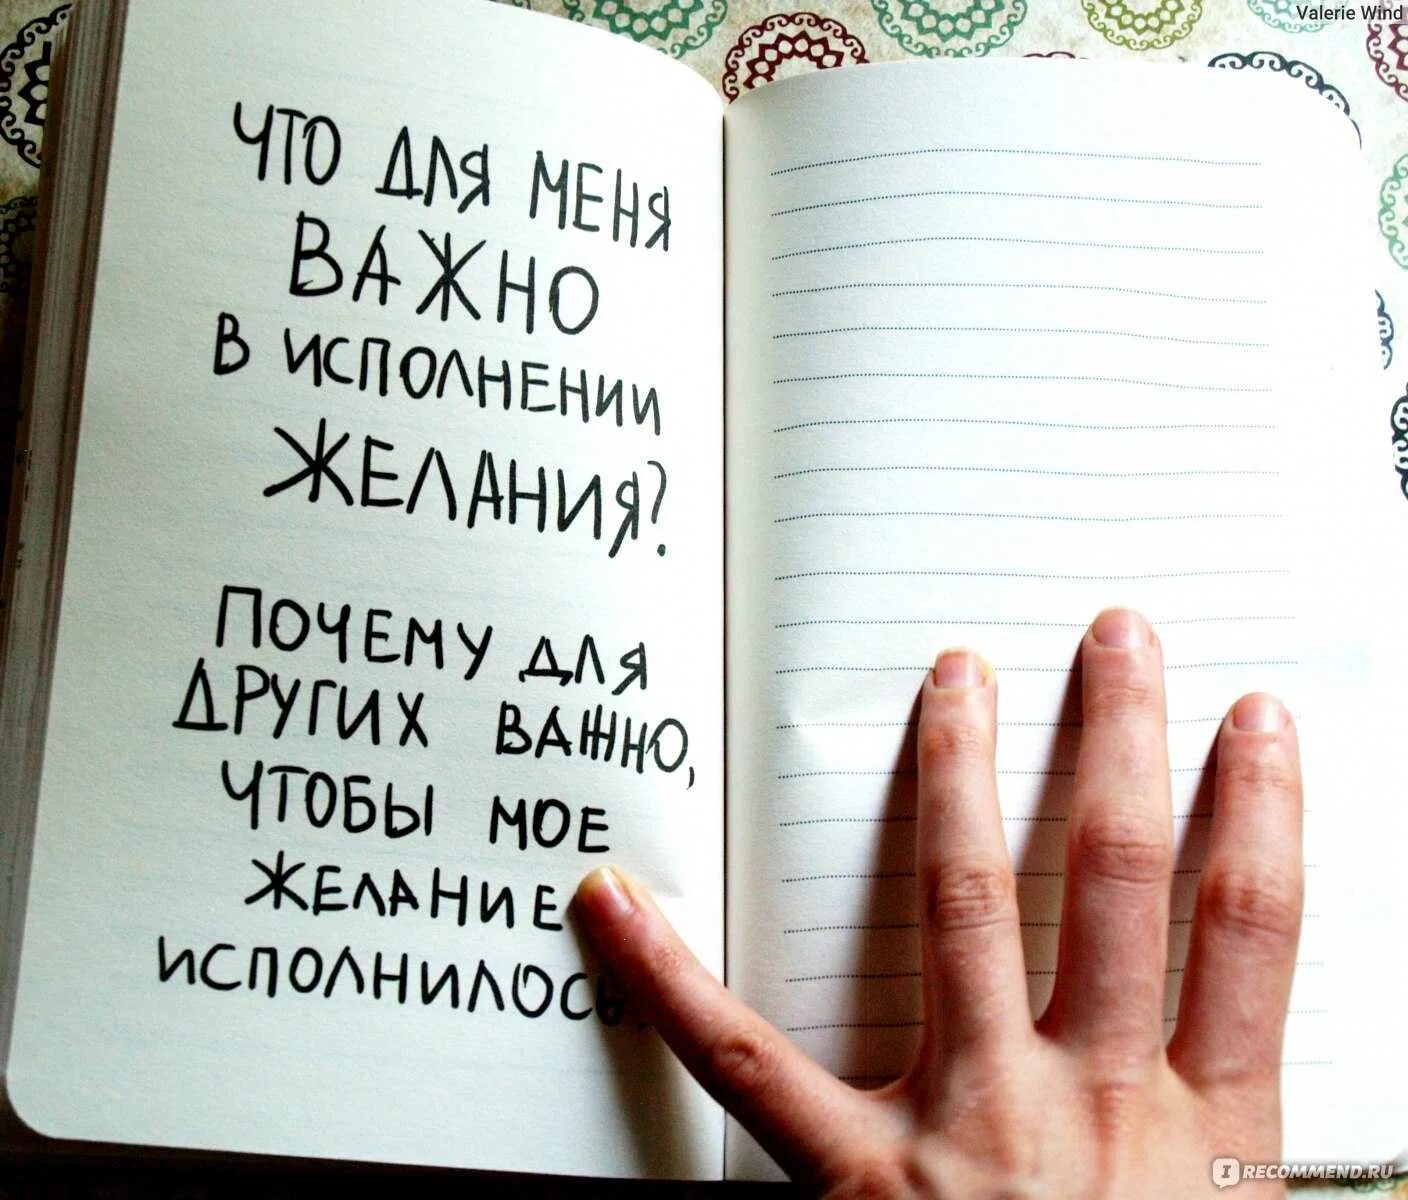 Valerie Wind
ЧТО ДЛЯ МЕНЯ
ВАЖНО
В ИСПОЛНЕНИИ
ЖЕЛАНИЯ?
ПОЧЕМУ ДЛЯ
ДРУГИХ ВАЖНО,
ЧТОБЫ МОЕ
ЖЕЛАНИЕ
ИСПОЛНИЛОСЬ
I RECOMMEND.RU